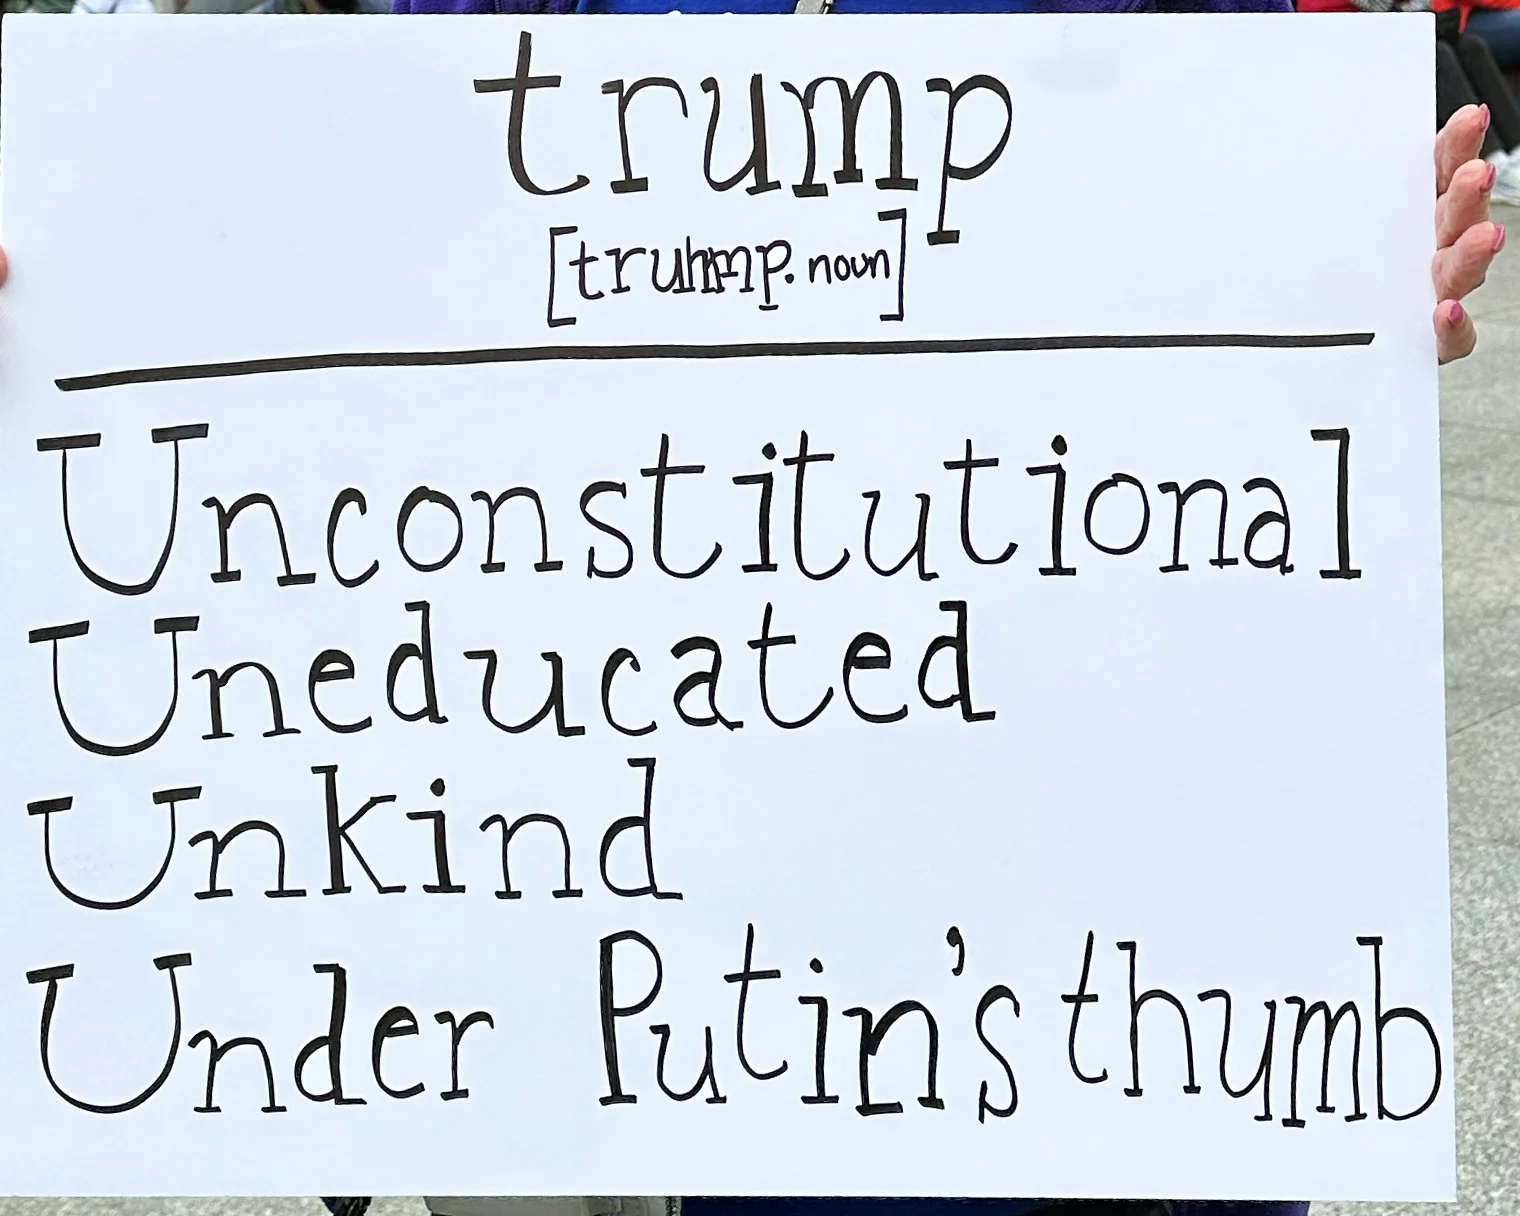 trump
[truhmp. noun]
Unconstitutional
Uneducated
Unkind
Under Putin's thumb